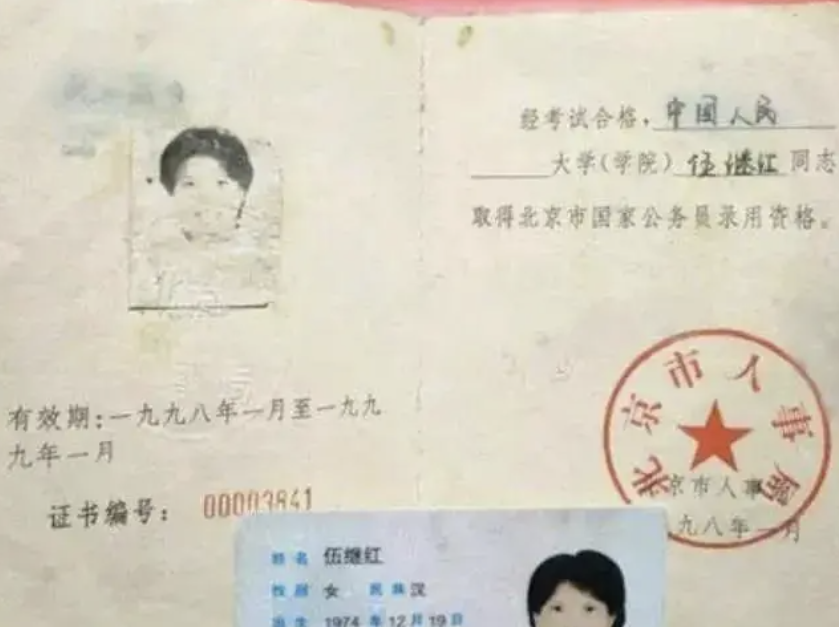 有效期:一九九八年一月至一九九
九年一月
证书编号: 00003841
经考试合格,中国人民
大学(学院)伍继红同志
取得北京市国家公务员录用资格。
北京市人事局
京市人事
九八年一月
姓名 伍继红
性别 女 民族 汉
出生 1974 年 12 月 19 日